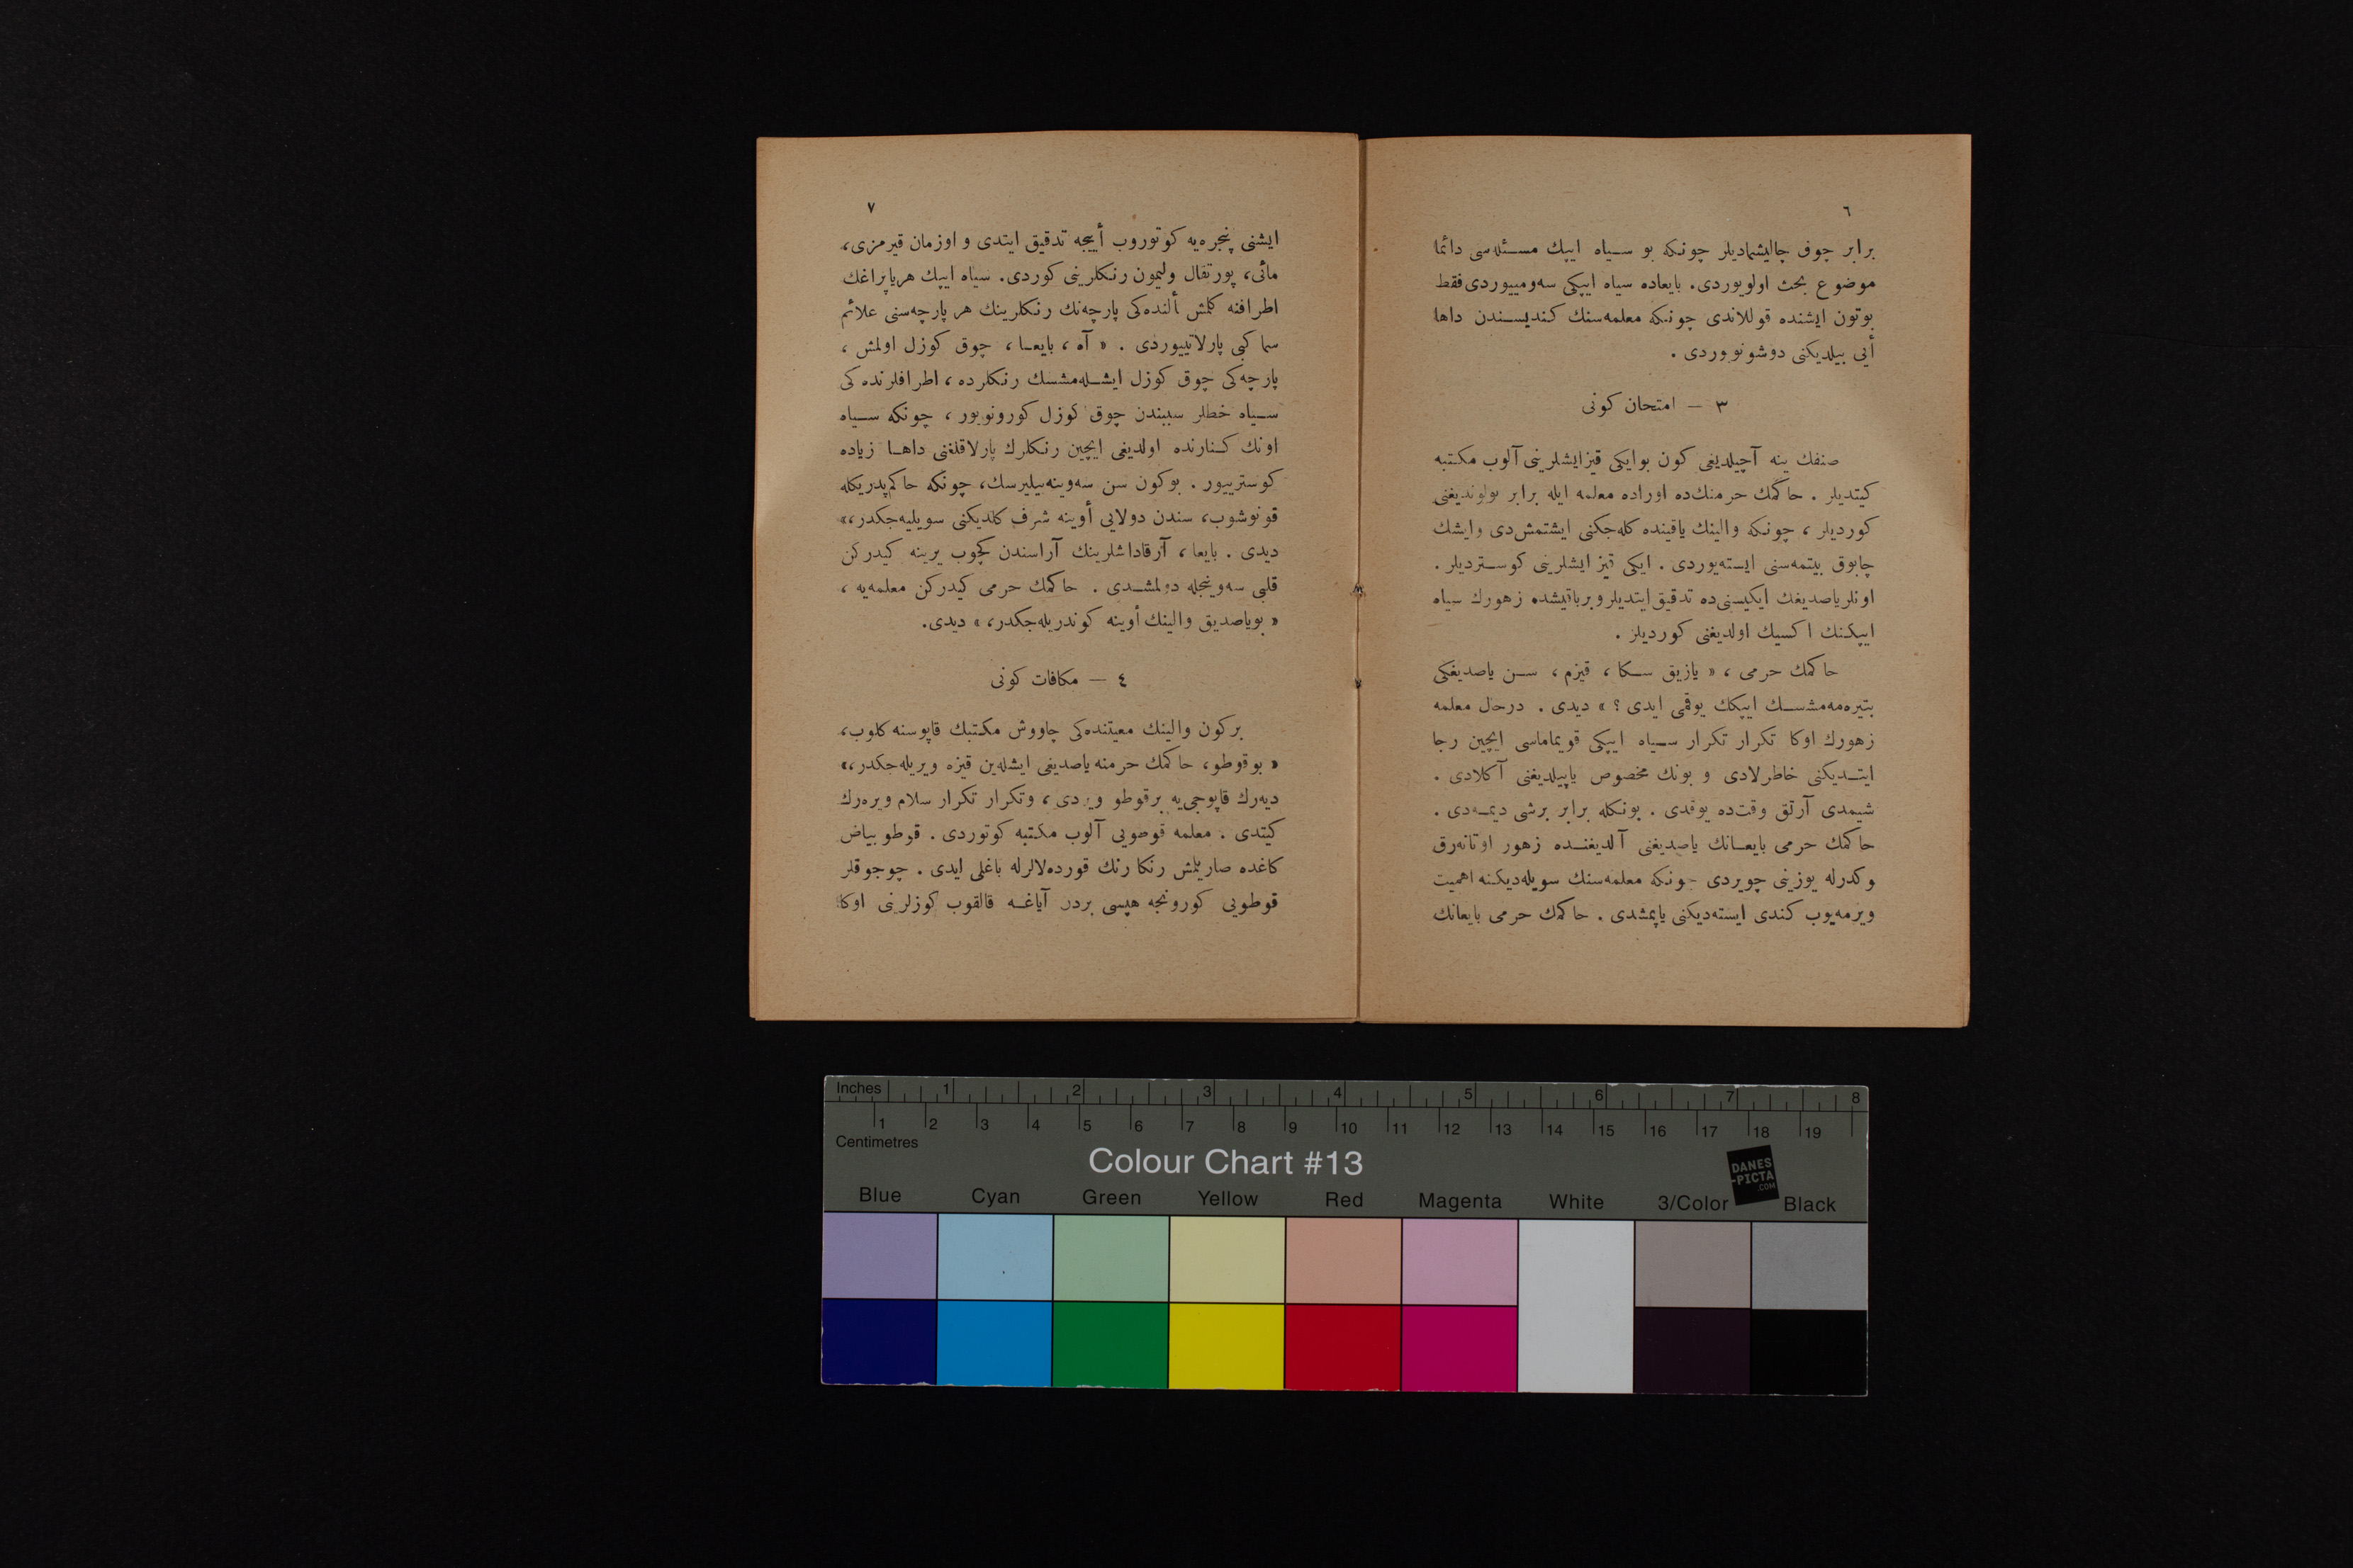 ٦
برابر چوق چالیشمادیلر چونکه بو سیاه ایپك مسئله‌سی دائما
موضوع بحث اولویوردی. بایعاده سیاه ایپکی سه‌ومییوردی فقط
بوتون ایشنده قوللاندی چونکه معلمه‌سنك کندیسندن داها
أیی بیلدیکنی دوشونویوردی .
٣ — امتحان کونی
صنفك ینه آچیلدیغی کون بوایکی قیزایشلرینی آلوب مکتبه
کیتدیلر . حاکمك حرمنك‌ده اوراده معلمه ایله برابر بولوندیغنی
کوردیلر ، چونکه والینك یاقینده کله‌جکنی ایشتمش‌دی وایشك
چابوق بیتمه‌سنی ایسته‌یوردی . ایکی قیز ایشلرینی کوستردیلر .
اونلریاصدیغك ایکیسنی‌ده تدقیق ایتدیلروبرباقیشده زهورك سیاه
ایپکنك اکسیك اولدیغنی کوردیلر .
حاکمك حرمی ، « یازیق سکا ، قیزم ، سن یاصدیغکی
بتیره‌مه‌مشسك ایپکك یوقمی ایدی ؟ » دیدی . درحال معلمه
زهورك اوکا تکرار تکرار سیاه ایپکی قویماماسی ایچین رجا
ایتدیکنی خاطرلادی و بونك مخصوص یاپیلدیغنی آکلادی .
شیمدی آرتق وقت‌ده یوقدی . بونکله برابر برشی دیمه‌دی .
حاکمك حرمی بایعانك یاصدیغنی آلدیغنده زهور اوتانه‌رق
وکدرله یوزینی چویردی چونکه معلمه‌سنك سویله‌دیکنه اهمیت
ویرمه‌یوب کندی ایسته‌دیکنی یاپمشدی . حاکمك حرمی بایعانك
٧
ایشنی پنجره‌یه کوتوروب أییجه تدقیق ایتدی و اوزمان قیرمزی،
مائی، پورتقال ولیمون رنکلرینی کوردی. سیاه ایپك هریاپراغك
اطرافنه کلمش ألنده‌کی پارچه‌نك رنکلرینك هر پارچه‌سنی علائم
سما کبی پارلاتییوردی . « آه ، بایعا ، چوق کوزل اولمش ،
پارچه‌کی چوق کوزل ایشله‌مشسك رنکلرده ، اطرافلرنده‌کی
سیاه خطلر سببندن چوق کوزل کورونویور ، چونکه سیاه
اونك کنارنده اولدیغی ایچین رنکلرك پارلاقلغنی داها زیاده
کوسترییور . بوکون سن سه‌وینه‌بیلیرسك، چونکه حاکم پدریکله
قونوشوب، سندن دولایی أوینه شرف کلدیکنی سویلیه‌جکدر،»
دیدی . بایعا ، آرقاداشلرینك آراسندن کچوب یرینه کیدرکن
قلبی سه‌وینجله دولمشدی . حاکمك حرمی کیدرکن معلمه‌یه ،
« بویاصدیق والینك أوینه کوندریله‌جکدر، » دیدی.
٤ — مکافات کونی
برکون والینك معیتنده‌کی چاووش مکتبك قاپوسنه کلوب،
« بوقوطو، حاکمك حرمنه یاصدیغی ایشله‌ین قیزه ویریله‌جکدر،»
دیه‌رك قاپوجی‌یه برقوطو ویردی ، وتکرار تکرار سلام ویره‌رك
کیتدی . معلمه قوطویی آلوب مکتبه کوتوردی . قوطو بیاض
کاغده صاریلمش رنکا رنك قورده‌لالرله باغلی ایدی . چوجوقلر
قوطویی کورونجه هپسی بردن آیاغه قالقوب کوزلرینی اوکا
Inches 1 2 3 4 5 6 7 8
1 2 3 4 5 6 7 8 9 10 11 12 13 14 15 16 17 18 19
Centimetres
Colour Chart #13
DANES
-PICTA
.COM
Blue Cyan Green Yellow Red Magenta White 3/Color Black